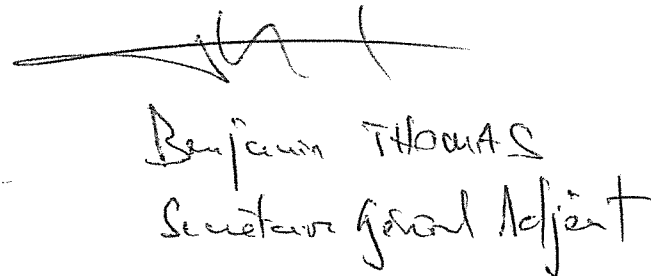 Benjamin THOMAS
Secrétaire Général Adjoint